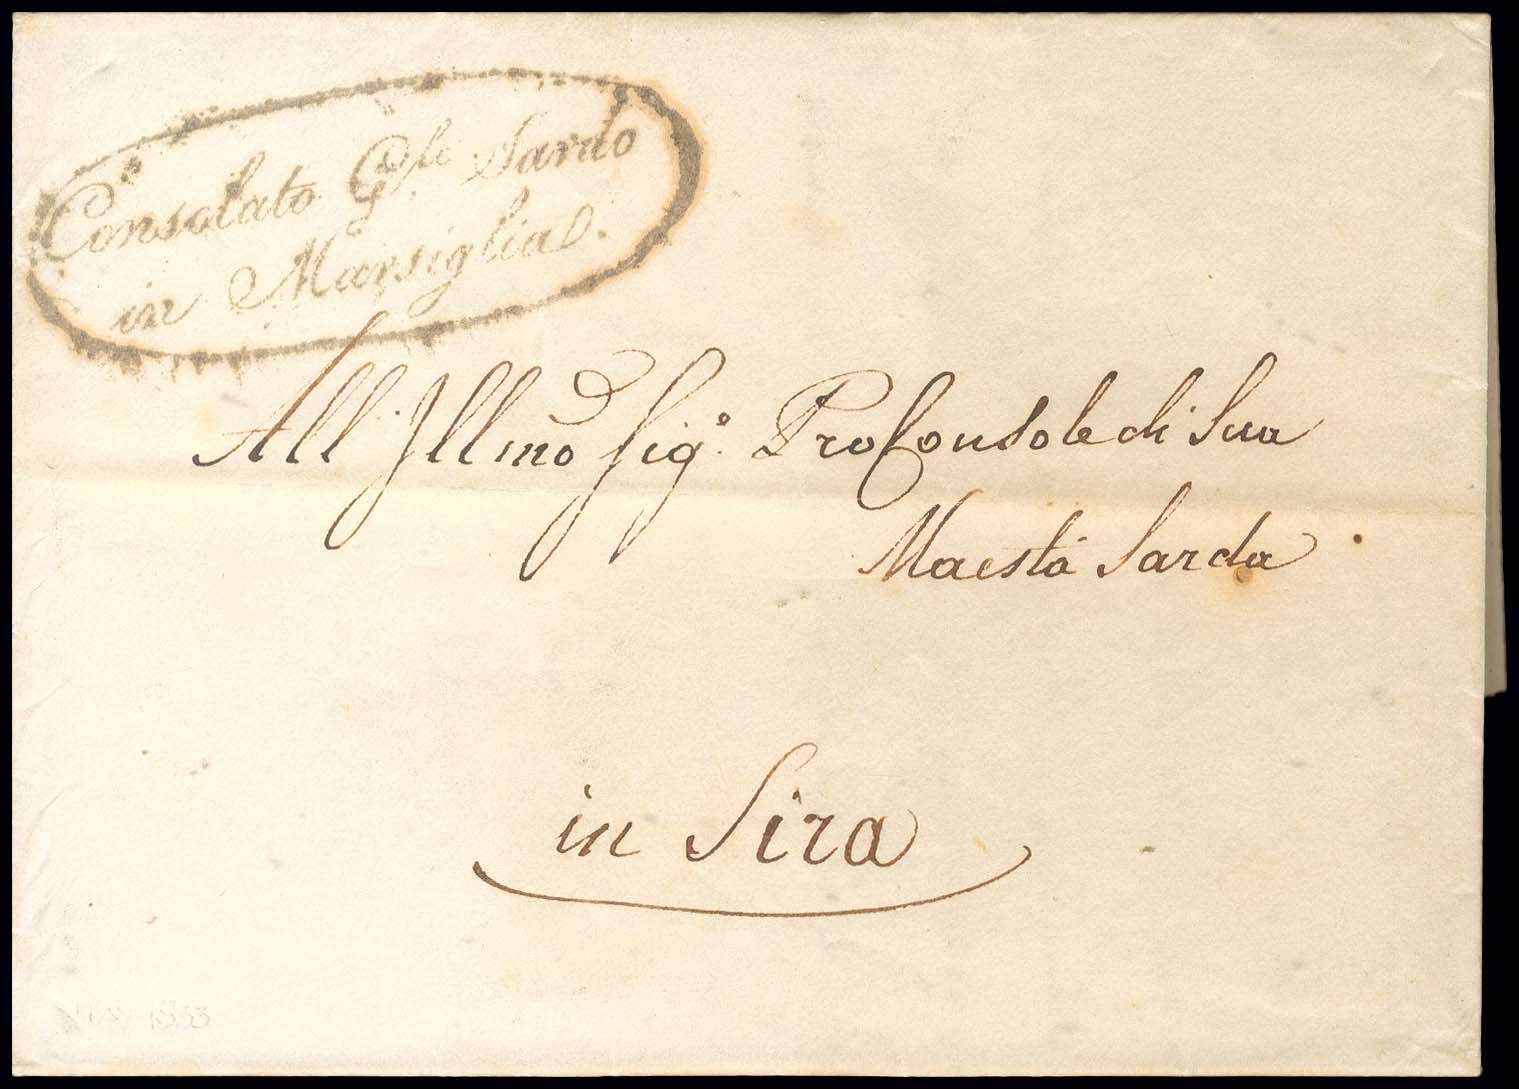 Consolato G.le Sardo
in Marsiglia.
All' Illmo Sig.º ProConsole di Sua
Maestà Sarda .
in Sira